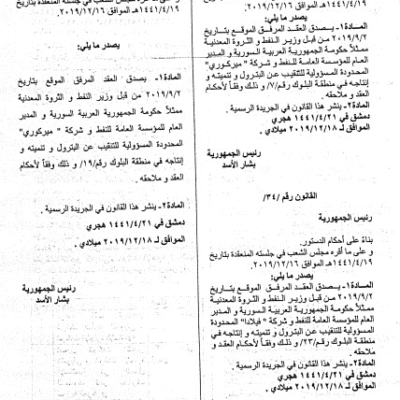 ١٤٤١/٤/١٩هـ الموافق ٢٠١٩/١٢/١٦.
يصدر ما يلي:
المادة١- يصدق العقد المرفق الموقع بتاريخ
٢٠١٩/٩/٢ من قبل وزير النفط و الثروة المعدنية
ممثلاً حكومة الجمهورية العربية السورية و المدير
العام للمؤسسة العامة للنفط و شركة " ميركوري"
المحدودة المسؤولية للتنقيب عن البترول و تنميته و
إنتاجه في منطقة البلوك رقم/٧/ و ذلك وفقاً لأحكام
العقد و ملاحقه .
المادة٢- ينشر هذا القانون في الجريدة الرسمية .
دمشق في ١٤٤١/٤/٢١ هجري
الموافق لـ ٢٠١٩/١٢/١٨ ميلادي .
رئيس الجمهورية
بشار الأسد
القانون رقم /٣٤/
رئيس الجمهورية
بناءً على أحكام الدستور.
و على ما أقره مجلس الشعب في جلسته المنعقدة بتاريخ
١٤٤١/٤/١٩هـ الموافق ٢٠١٩/١٢/١٦.
يصدر ما يلي:
المادة١- يصدق العقد المرفق الموقع بتاريخ
٢٠١٩/٩/٢ من قبل وزير النفط و الثروة المعدنية
ممثلاً حكومة الجمهورية العربية السورية و المدير
العام للمؤسسة العامة للنفط و شركة " فيلادا" المحدودة
المسؤولية للتنقيب عن البترول و تنميته و إنتاجه في
منطقة البلوك رقم/٢٣/ و ذلك وفقاً لأحكام العقد و
ملاحقه .
المادة٢- ينشر هذا القانون في الجريدة الرسمية .
دمشق في ١٤٤١/٤/٢١ هجري
الموافق لـ ٢٠١٩/١٢/١٨ ميلادي .
رئيس الجمهورية
بشار الأسد
في جلسته المنعقدة بتاريخ
١٤٤١/٤/١٩هـ الموافق ٢٠١٩/١٢/١٦.
يصدر ما يلي:
المادة١- يصدق العقد المرفق الموقع بتاريخ
٢٠١٩/٩/٢ من قبل وزير النفط و الثروة المعدنية
ممثلاً حكومة الجمهورية العربية السورية و المدير
العام للمؤسسة العامة للنفط و شركة " ميركوري"
المحدودة المسؤولية للتنقيب عن البترول و تنميته و
إنتاجه في منطقة البلوك رقم/١٩/ و ذلك وفقاً لأحكام
العقد و ملاحقه .
المادة٢- ينشر هذا القانون في الجريدة الرسمية .
دمشق في ١٤٤١/٤/٢١ هجري
الموافق لـ ٢٠١٩/١٢/١٨ ميلادي .
رئيس الجمهورية
بشار الأسد